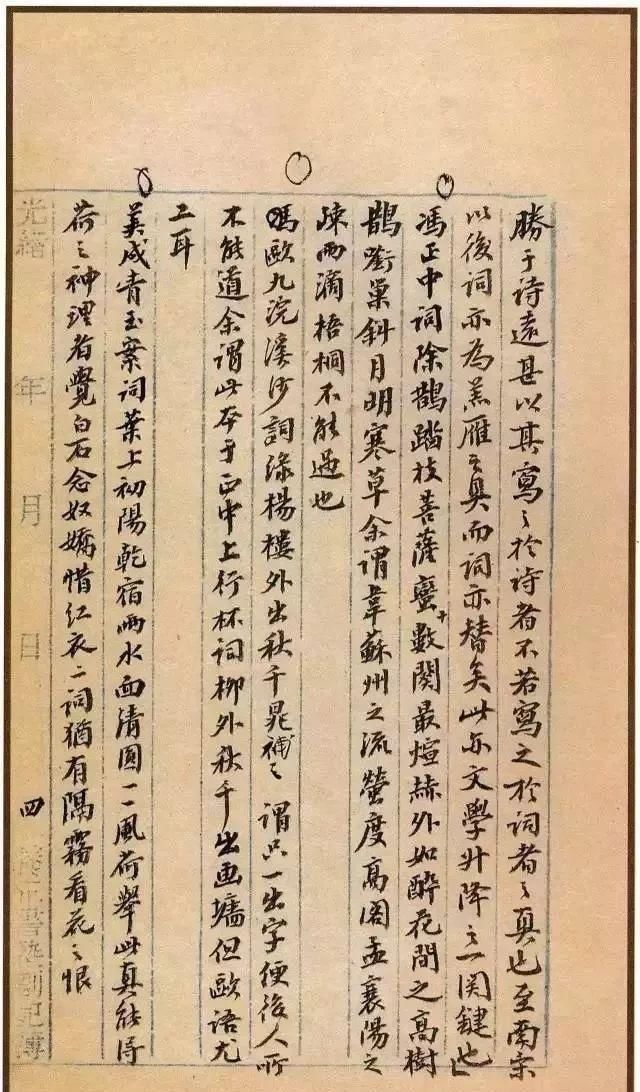 勝于诗遠甚以其寫之於诗者不若寫之於词者之真也至南宋
以後词亦為羔雁之具而词亦替矣此亦文學升降之一関鍵也
馮正中词除鵲踏枝菩薩蠻十數闋最煊赫外如醉花間之高樹
鵲銜巢斜月明寒草余謂韋蘇州之流螢度高阁孟襄陽之
疎雨滴梧桐不能過也
歐九浣溪沙詞綠楊樓外出秋千晁補之謂只一出字便後人所
不能道余謂此本于正中上行杯词柳外秋千出画墻但歐语尤
工耳
美成青玉案词葉上初陽乾宿雨水面清圓一一風荷舉此真能得
荷之神理者覺白石念奴嬌惜红衣二词猶有隔霧看花之恨
光緒 年 月 日 四